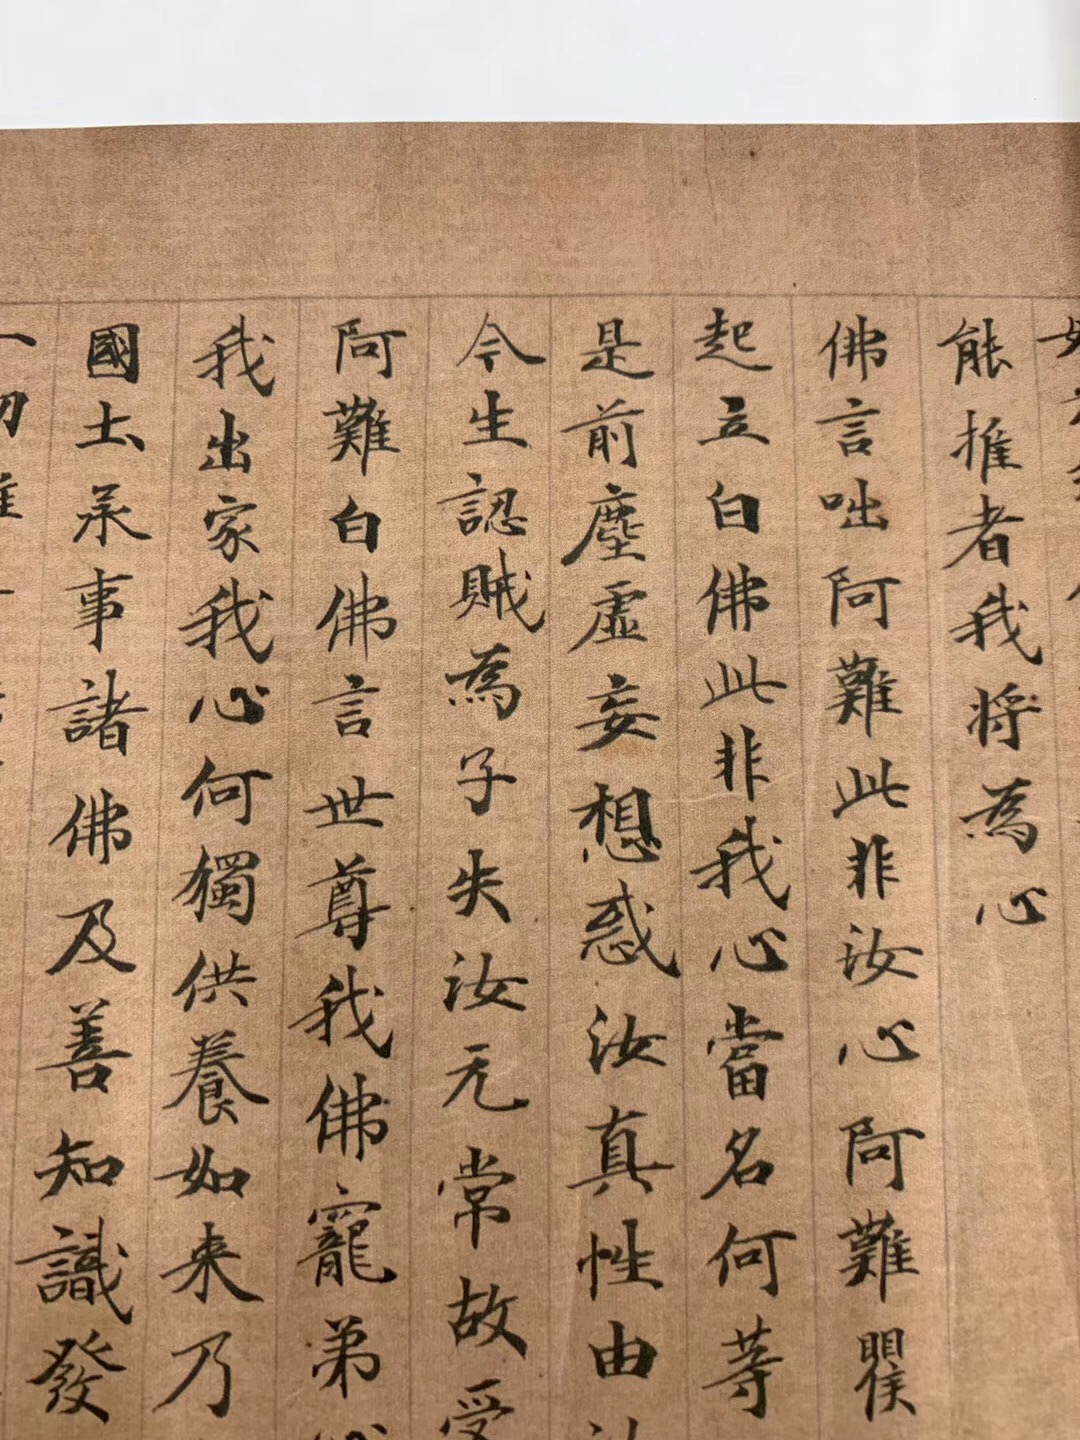 能推者我將為心
佛言咄阿難此非汝心阿難矍
起立白佛此非我心當名何等
是前塵虛妄想惑汝真性由
今生認賊為子失汝元常故受
阿難白佛言世尊我佛寵弟
我出家我心何獨供養如来乃
國土承事諸佛及善知識發
一切難